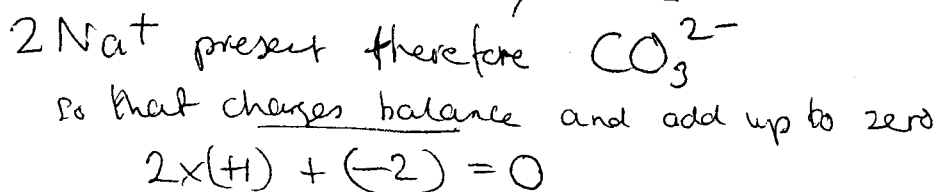 2 Na⁺ present therefore CO₃²⁻
so that charges balance and add up to zero
2x(+1) + (-2) = 0